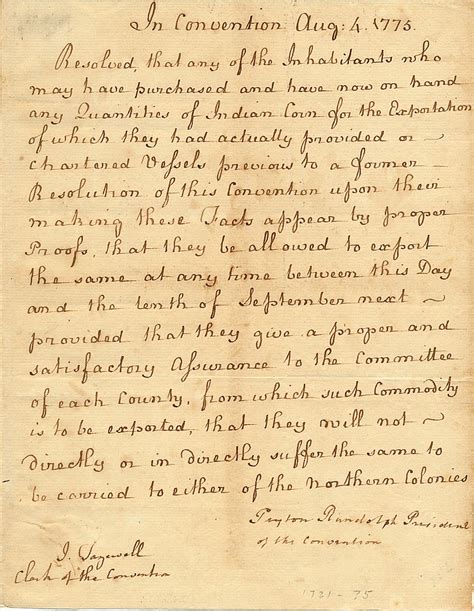 In Convention Aug: 4. 1775.
Resolved, that any of the Inhabitants who
may have purchased and have now on hand
any Quantities of Indian Corn for the Exportation
of which they had actually provided or
chartered Vessels previous to a former
Resolution of this Convention upon their
making these Facts appear by proper
Proofs, that they be allowed to export
the same at any time between this Day
and the tenth of September next
provided that they give a proper and
satisfactory Assurance to the Committee
of each County, from which such Commodity
is to be exported, that they will not
directly or in directly suffer the same to
be carried to either of the Northern Colonies
Peyton Randolph President
of the Convention
J. Tazewell
Clerk of the Convention
1721-75